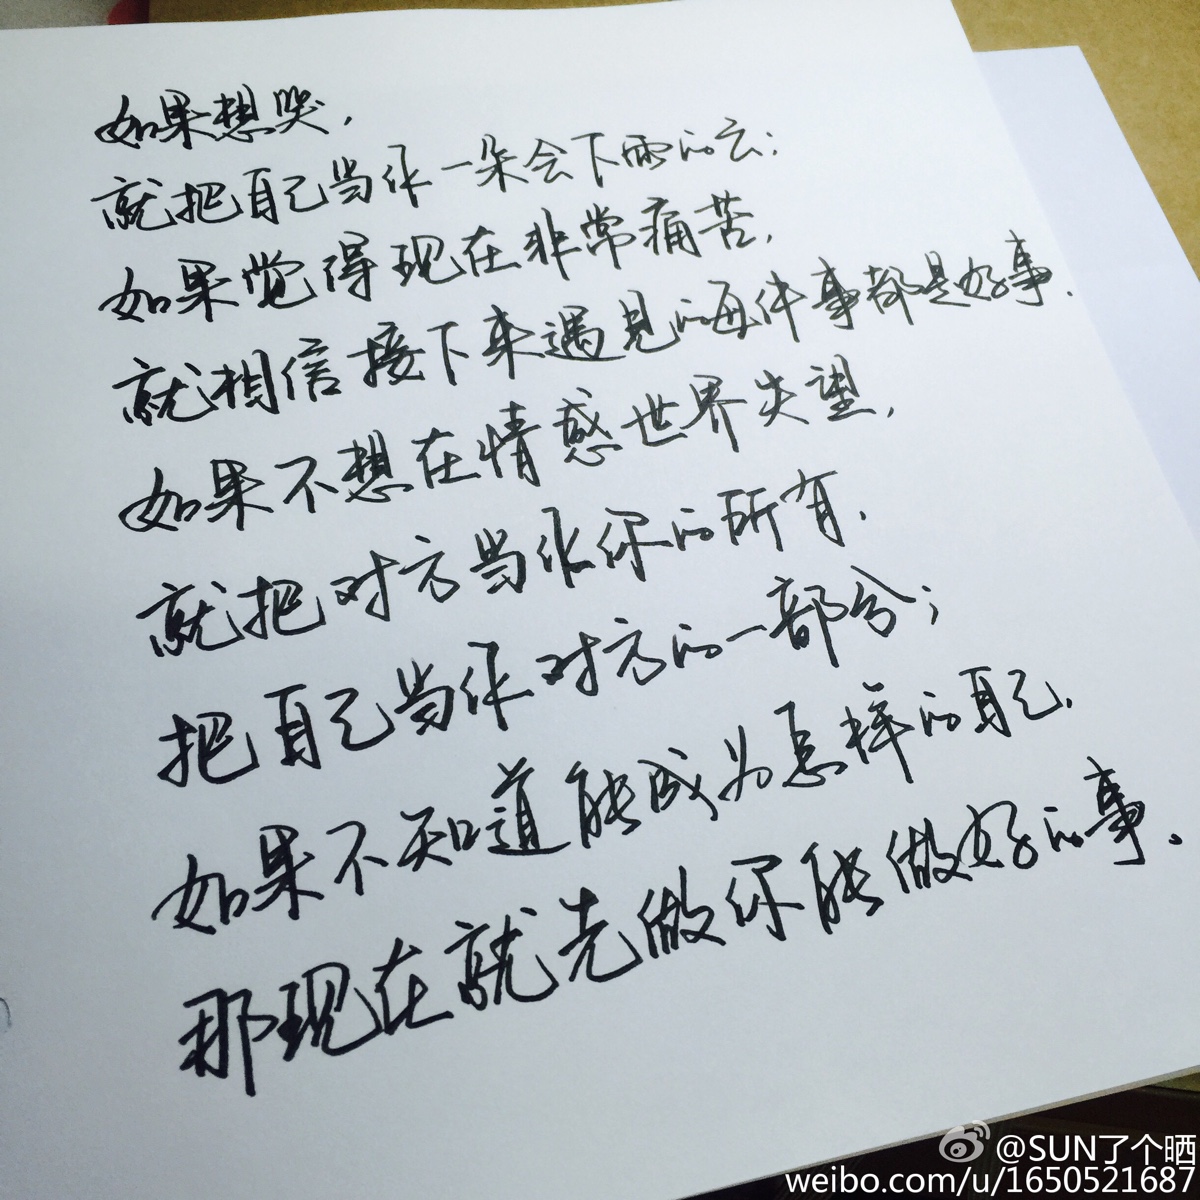 如果想哭，
就把自己当作一朵会下雨的云；
如果觉得现在非常痛苦，
就相信接下来遇见的每件事都是好事，
如果不想在情感世界失望，
就把对方当作你的所有，
把自己当作对方的一部分；
如果不知道能成为怎样的自己，
那现在就先做你能做好的事。
@SUN了个晒
weibo.com/u/1650521687